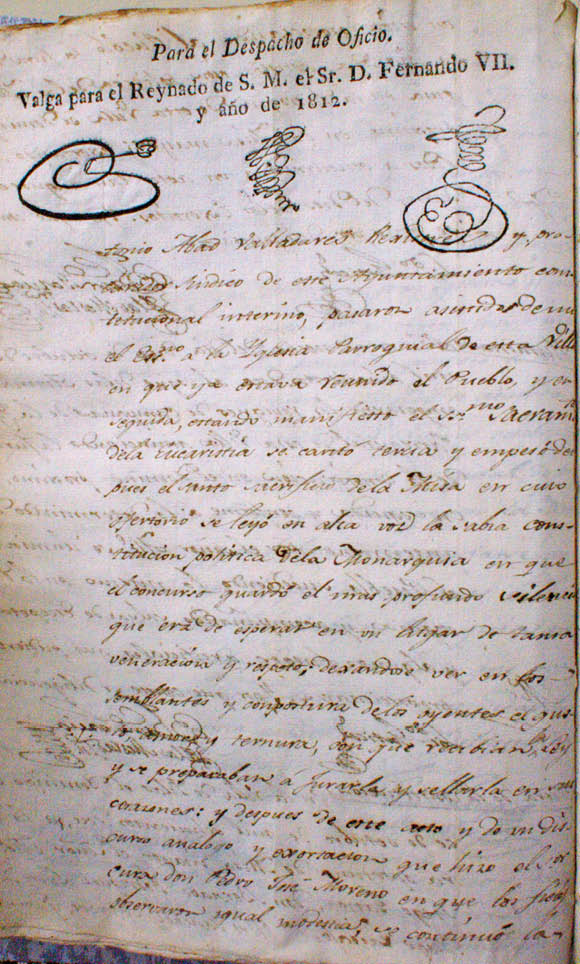 Para el Despacho de Oficio.
Valga para el Reynado de S. M. el Sr. D. Fernando VII.
y año de 1812.
tonio Abad Valladares y pro-
curador Sindico de este Ayuntamiento cons-
titucional interino, pasaron asistidos de mi
el Esc.no a la Yglesia Parroquial de esta Villa
en que ya estava reunido el Pueblo, y en
seguida, estando manifiesto el S.mo Sacram.to
dela Eucaristia se canto tercia y empesó des
pues el santo Sacrificio dela Misa en cuio
ofertorio se leyó en alta voz la sabia cons-
titucion politica dela Monarquia en que
el concurso guardó el mas profundo silencio
que era de esperar en un lugar de tanta
veneracion y respeto; dexandose ver en los
semblantes y conpostura de los oyentes el gus-
to amor y ternura, con que recibian la Ley
y se preparaban á Jurarla y sellarla en sus
corazones: y despues de este acto y de un dis-
curso analogo y exortacion que hizo el Sor
cura don Pedro Jose Moreno en que los fieles
observaron igual modestia, se continuó la